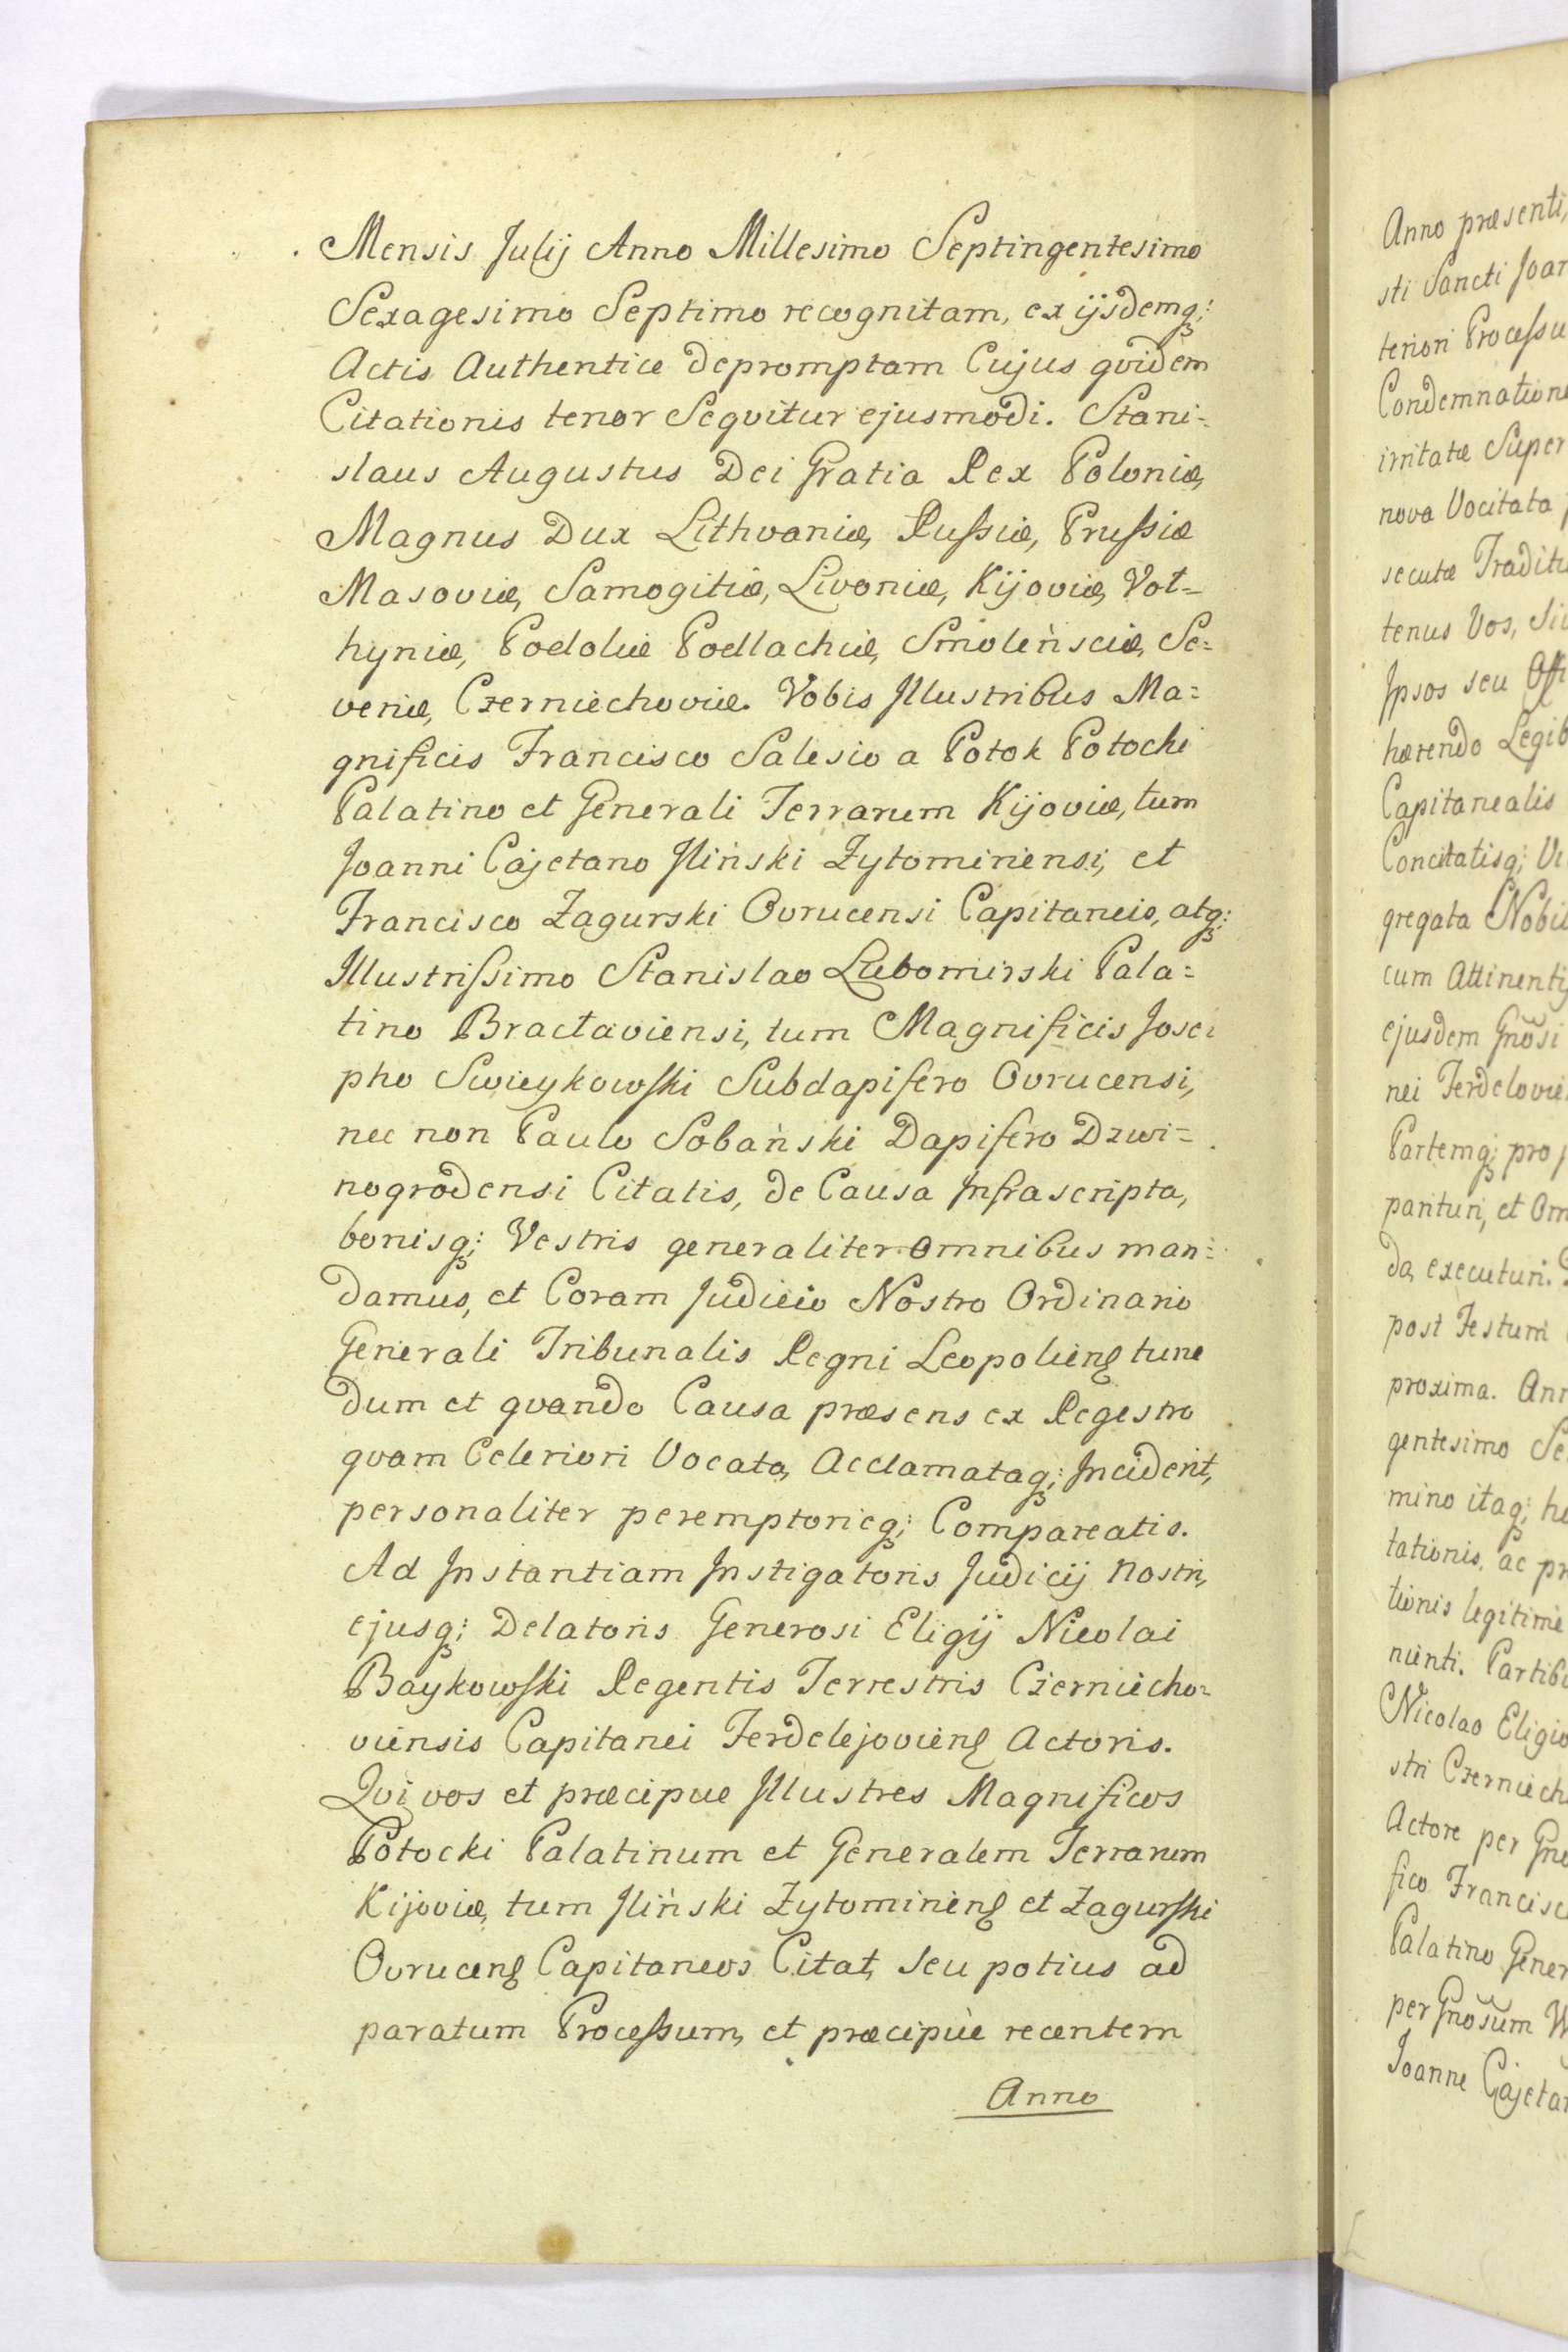 Mensis Julij Anno Millesimo Septingentesimo
Sexagesimo Septimo recognitam, ex ijsdemq;
Actis Authentice depromptam Cujus qvidem
Citationis tenor Seqvitur ejusmodi. Stani=
slaus Augustus Dei Gratia Rex Poloniæ,
Magnus Dux Lithvaniæ, Russiæ, Prussiæ
Masoviæ, Samogitiæ, Livoniæ, Kijoviæ, Vol=
hyniæ, Podoliæ Podlachiæ, Smoleńsciæ, Se=
veriæ, Czerniechoviæ. Vobis Illustribus Ma=
gnificis Francisco Salesio a Potok Potocki
Palatino et Generali Terrarum Kijoviæ, tum
Joanni Cajetano Iliński Zytomiriensi, et
Francisco Zagurski Ovrucensi Capitaneis, atq;
Illustrissimo Stanislao Lubomirski Pala=
tino Bractaviensi, tum Magnificis Jose=
pho Swieykowski Subdapifero Ovrucensi,
nec non Paulo Sobański Dapifero Dzwi=
nogrodensi Citatis, de Causa Infrascripta,
bonisq; Vestris generaliter omnibus man=
damus, et Coram Judicio Nostro Ordinario
Generali Tribunalis Regni Leopolienß tunc
dum et qvando Causa præsens ex Regestro
qvam Celeriori Vocata, Acclamataq; Inciderit,
personaliter peremptorieq; Compareatis.
Ad Instantiam Instigatoris Judicij Nostri,
ejusq; Delatoris Generosi Eligij Nicolai
Baykowski Regentis Terrestris Czerniecho=
viensis Capitanei Ferdelejovienß Actoris.
Qvi vos et præcipue Illustres Magnificos
Potocki Palatinum et Generalem Terrarum
Kijoviæ, tum Iliński Zytomirienß et Zagurski
Ovrucenß Capitaneos Citat, seu potius ad
paratum Processum, et præcipùe recentem
Anno
Anno præsenti,
sti Sancti
teriori Processu
irritatæ Super
nova Vocitata
secutæ
tenus Vos,
Ipsos seu
hærendo
Capitanealis
Concitatisq;
gregata
cum
ejusdem Gnosi
nei
Partemq; pro
parituri, et
da, executuri.
post Festum
proxima.
gentesimo
mino itaq;
tationis, ac
tionis legitime
nienti.
Nicolao Eligio
stri
Actore per
fico
Palatino
per Gnosum
Joanne